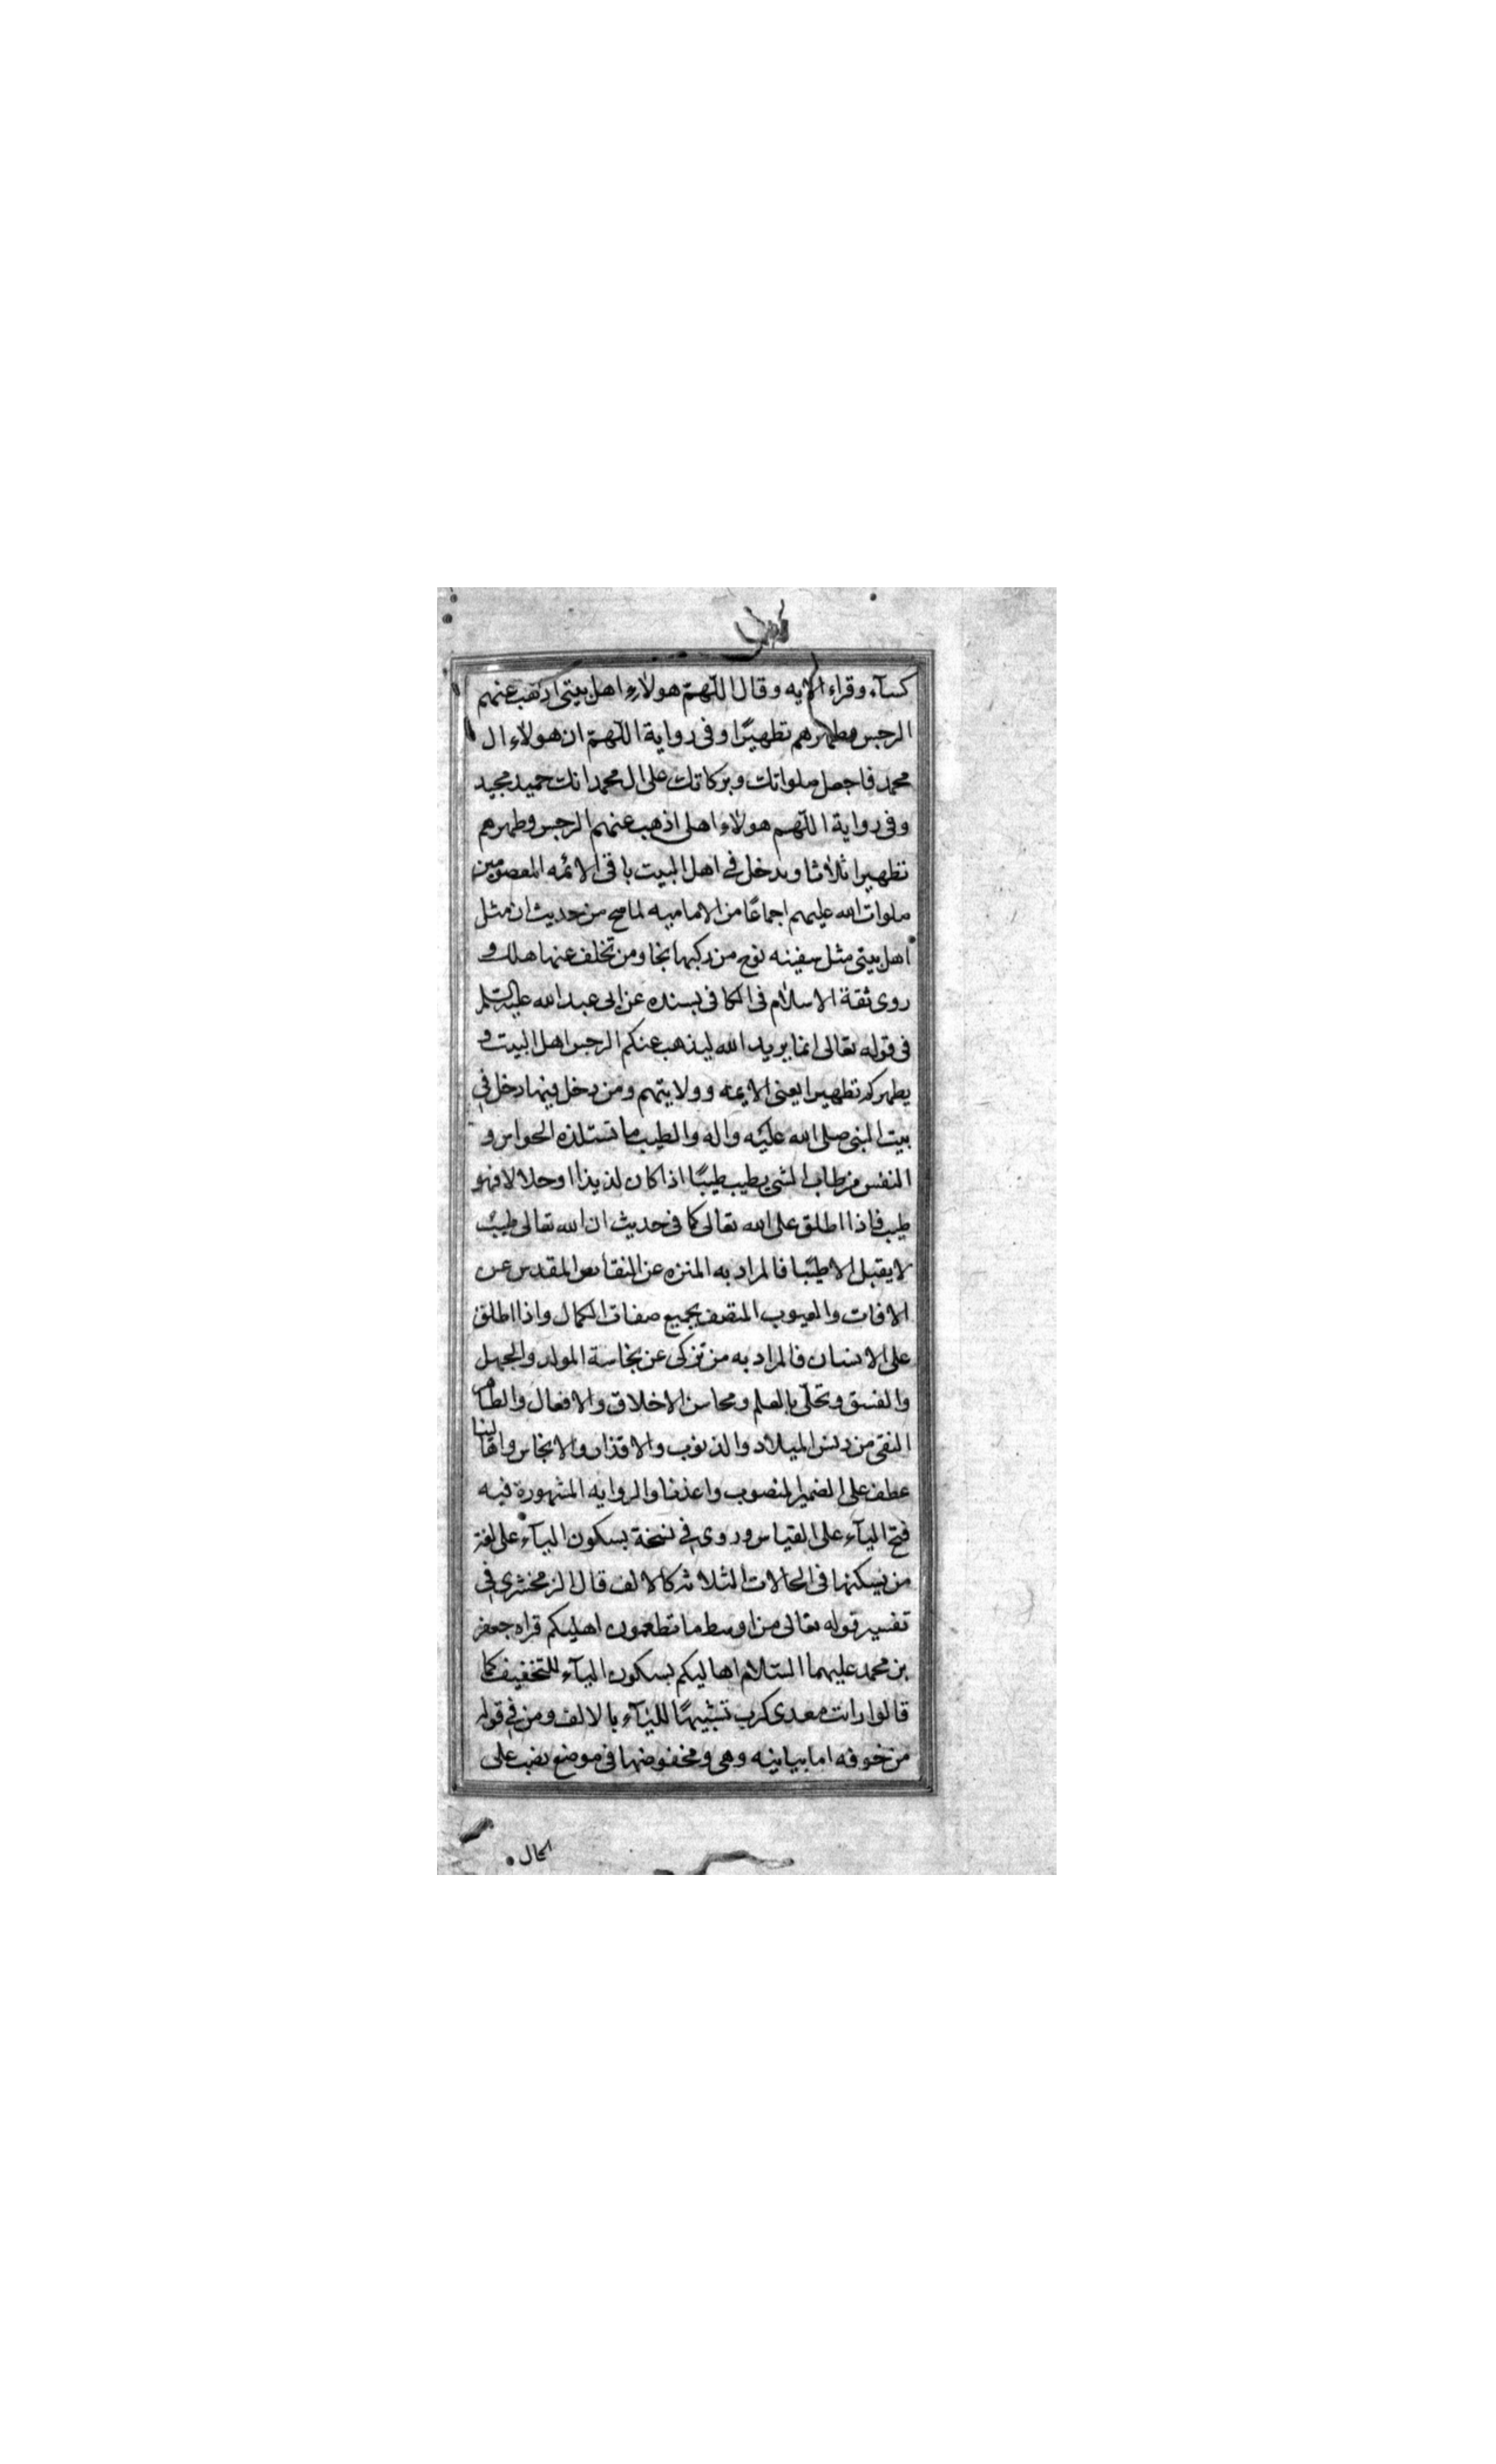 كساء وقراء الايه وقال اللهم هولاء اهل بيتي اذهب عنهم
الرجس وطهرهم تطهيرًا وفى رواية اللهم ان هولاء ال
محمد فاجعل صلواتك وبركاتك على ال محمد انك حميد مجيد
وفى رواية اللهم هولاء اهلى اذهب عنهم الرجس وطهرهم
تطهيرا ثلاثا ويدخل فى اهل البيت باقى الائمه المعصومين
صلوات الله عليهم اجماعًا من الاماميه لما صح من حديث ان مثل
اهل بيتى مثل سفينه نوح من ركبها نجا ومن تخلف عنها هلك و
روى ثقة الاسلام فى الكافى بسنده عن ابى عبد الله عليه السلم
فى قوله تعالى انما يريد الله ليذهب عنكم الرجس اهل البيت و
يطهركم تطهيرا يعنى الايمه وولايتهم ومن دخل فيها دخل فى
بيت النبى صلى الله عليه واله والطيب ما تستلذه الحواس و
النفس من طاب الشى يطيب طيبًا اذا كان لذيذا او حلالا فهو
طيب فاذا اطلق على الله تعالى كما فى حديث ان الله تعالى طيب
لا يقبل الا طيبًا فالمراد به المنزه عن النقائص المقدس عن
الافات والعيوب المتصف بجميع صفات الكمال واذا اطلق
على الانسان فالمراد به من تزكى عن نجاسة المولد والجهل
والفسق وتحلّى بالعلم ومحاسن الاخلاق والافعال والطاهر
النقى من دنس الميلاد والذنوب والاقذار والانجاس واهالينا
عطف على الضمير المنصوب واعذنا والروايه المشهورة فيه
فتح الياء على القياس وروى فى نسخة بسكون الياء على لغة
من يسكنها فى الحالات الثلاث كالالف قال الزمخشرى فى
تفسير قوله تعالى من اوسط ما تطعمون اهليكم قراه جعفر
بن محمد عليهما السلام اهاليكم بسكون الياء للتخفيف كما
قالوا رايت معدى كرب تشبيهًا للياء بالالف ومن فى قوله
من خوفه اما بيانيه وهى ومخفوضها فى موضع نصب على
الحال